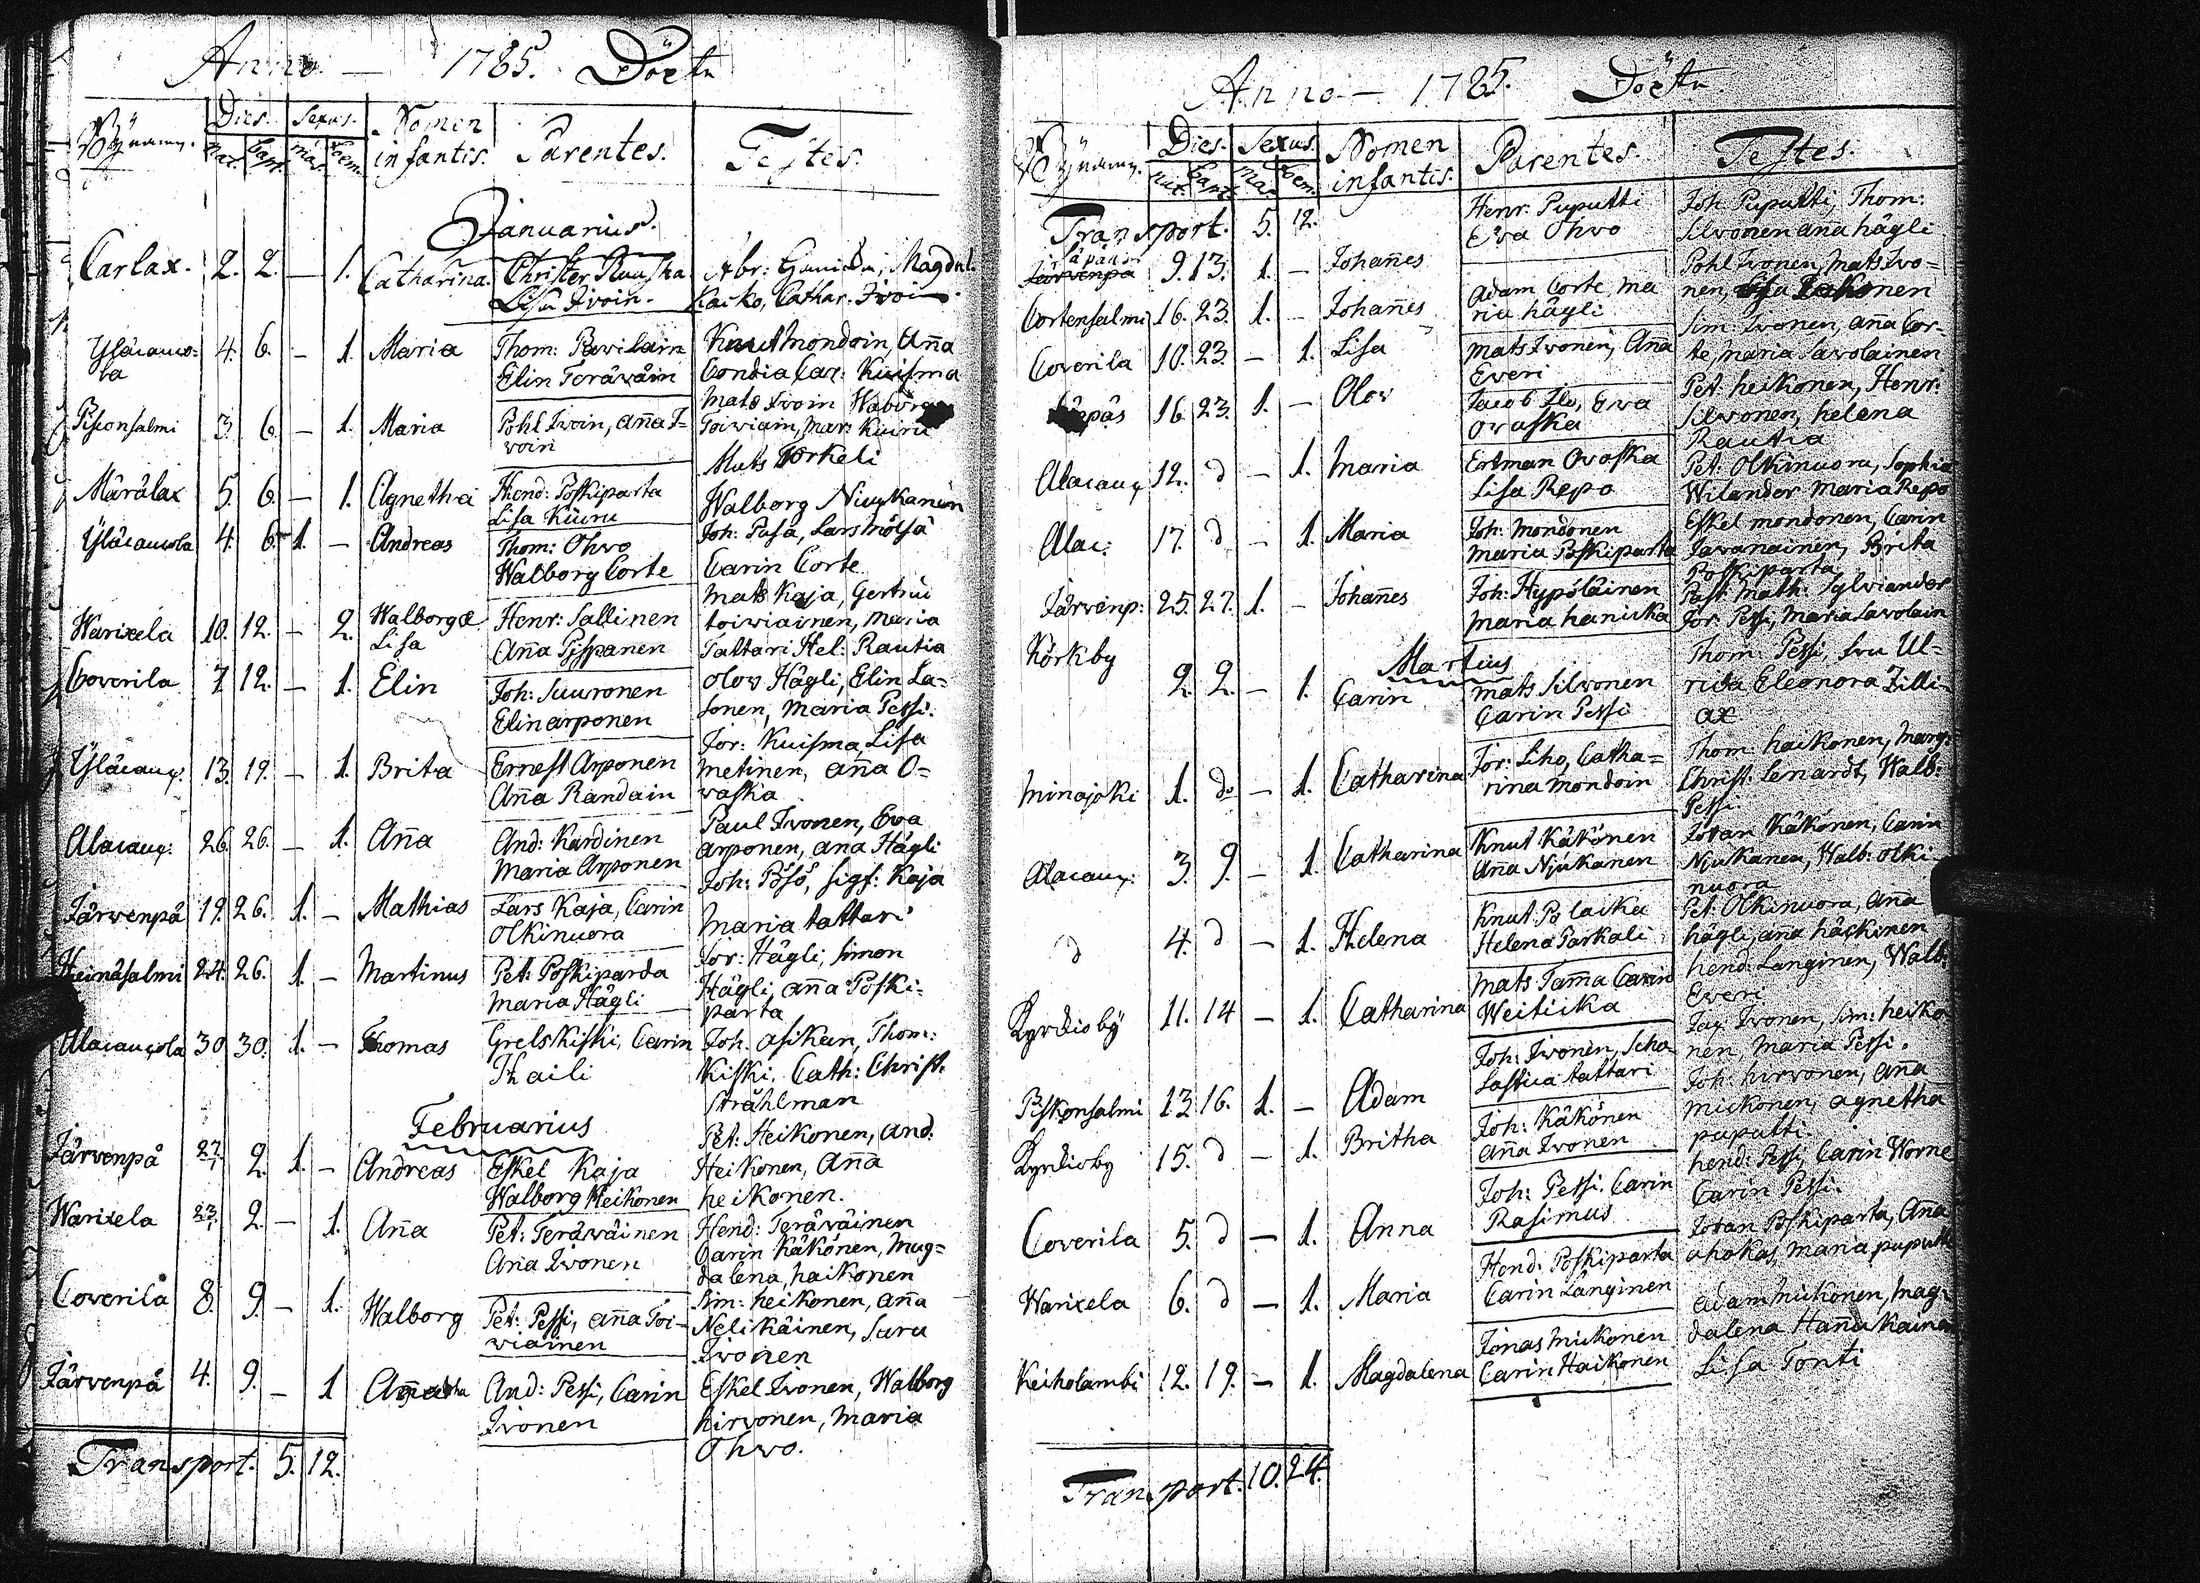 Anno — 1785. Döpte
Bÿnamn. Dies. Sexus. Nomen infantis. Parentes. Testes.
Nat. Bapt. Mas. Foem.
Januarius.
Carlax. 2. 2. — 1. Catharina Christer
Lisa Ivoin. Kacko, Cathar. Ivoin.
Yläcauco= 4. 6. — 1. Maria Thom: Pavilain Knut Mondoin, Aña
la Elin Teräväin Condia Car: Kuisma
Pisconsalmi 3. 6. — 1. Maria Pohl Ivoin, Aña I= Mats Ivoin Waborg
voin Toiviain, Mar: Kuiru
Märälax 5. 6. — 1. Agnetha Hend: Poskiparta Mats Torkeli
Lisa Kuiru Walborg Niuckanen
Yläcaucola 4. 6. 1. — Andreas Thom: Ohvo Joh: Pusa, Lars Mölsä
Walborg Corte Carin Corte
Warixela 10. 12. — 2. Walborg & Henr: Sallinen Mats Kaja, Gertru
Lisa Aña Pispanen toiviainen, Maria
Tattari Hel: Rautia
Coverila 7 12. — 1. Elin Joh: Suuronen Olov Hägli, Elin La=
Elin arponen sonen, Maria Pessi.
Yläcauc: 13. 19. — 1. Brita Ernest Arponen Jör: Kuisma Lisa
Aña Randain Metinen, aña O=
vaska
Alacauc: 26. 26. — 1. Aña And: Kardinen Paul Ivonen, Eva
Maria Arponen arponen, ana Hägli
Järvenpä 19. 26. 1. — Mathias Lars Kaja, Carin Joh: Pösö, Sigf: Kaja
Olkinuora Maria tattari
Heinäsalmi 24. 26. 1. — Martinus Pet: Poskiparda Jör: Hägli, Simon
Maria Hägli Hägli, aña Poski=
parta
Alacaucola 30 30. 1. — Thomas Grels Kiski, Carin Joh. asikan, Thom:
Thaili Kiski, Cath: Christ.
Strählman
Februarius
Järvenpä 27/1 2. 1. — Andreas Eskel Kaja Pet: Heikonen, And:
Walborg Heikonen Heikonen, Aña
heikonen.
Warixela 23/1 2. — 1. Aña Pet: Teräväinen Hend: Teräväinen
Aña Ivonen Carin Käkönen, Mag=
dalena haikonen
Coverila 8. 9. — 1. Walborg Pet: Pessi, aña Toi= Sim: heikonen, aña
viainen Nelikäinen, Sara
Ivonen
Järvenpä 4. 9. — 1 And: Pessi, Carin Eskel Ivonen, Walborg
Ivonen hirvonen, Maria
Ohvo.
Transport. 5. 12.
Anno — 1785. Döpte
Bÿnamn. Dies. Sexus. Nomen infantis. Parentes. Testes.
Nat. Bapt. Mas. Foem.
Transport. 5. 12.
Järvenpä 9. 13. 1. — Johañes Henr: Puputti Joh: Puputti, Thom:
Eva Ohvo Silvonen aña hägli
Cortensalmi 16. 23. 1. — Johañes Adam Corte, Ma Pohl Ivonen, Mats Ivo=
ria hägli nen,
Coverila 10. 23. — 1. Lisa Mats Ivonen, Aña Sim Ivonen, aña Cor=
Everi te, Maria Savolainen
16. 23. 1. — Olov Jacob Ilo, Eva Pet: heikonen, Henr:
Ovaska Silvonen, helena
Rautia
Alacauc 12. d — 1. Maria Ertman Ovaska Pet: Olkinuora, Sophia
Lisa Repo Wilander Maria Repo
Alac: 17. d — 1. Maria Joh: Mondonen Eskel mondonen, Carin
Maria Poskiparta Javanainen, Brita
Poskiparta
Järvenp: 25. 27. 1. — Johañes Joh: Hypöläinen Past: Math: Sylviander
Maria hanicka Jör: Pessi, Maria Savolain
Martius
Körkby 2. 2. — 1. Carin Mats Silvonen Thom: Pessi, fru Ul=
Carin Pessi rica Eleonora Zilli=
ax
Minajoki 1. do — 1. Catharina Jör: Liho, Catha= Thom: haikonen, Marg:
rina Mondoin Christ. Lenardt, Walb:
Pessi
Alacauc: 3. 9. — 1. Catharina Knut Käkönen Jöran Käkönen, Carin
Aña Njukanen Njukanen, Walb: olki=
nuora
d 4. d — 1. Helena Knut Polacka Pet: Olkinuora, aña
Helena Parkali hägli, ana häckinen
Kyrckioby 11. 14 — 1. Catharina Mats Tama Carin hend: Langinen, Walb:
Weiticka Everi
Piskonsalmi 13 16. 1. — Adam Joh: Ivonen, Scho Jac: Ivonen, Sim: heiko
lastica tattari nen, Maria Pessi.
Kyrckioby 15. d — 1. Britha Joh: Käkönen Joh: hirvonen, aña
aña Ivonen Mickonen, agnetha
puputti.
Coverila 5. d — 1. Anna Joh: Pessi, Carin hend: Pessi, Carin Worne
Rasimus Carin Pessi.
Warixela 6. d — 1. Maria Hend: Poskiparta Jöran Poskiparta, Aña
Carin Langinen ahokas, maria puputti
Keiholambi 12. 19. — 1. Magdalena Jonas Mickonen Adam Mickonen, Mag=
Carin Haikonen dalena Hañukainen
Lisa Tonti
Transport. 10. 24.